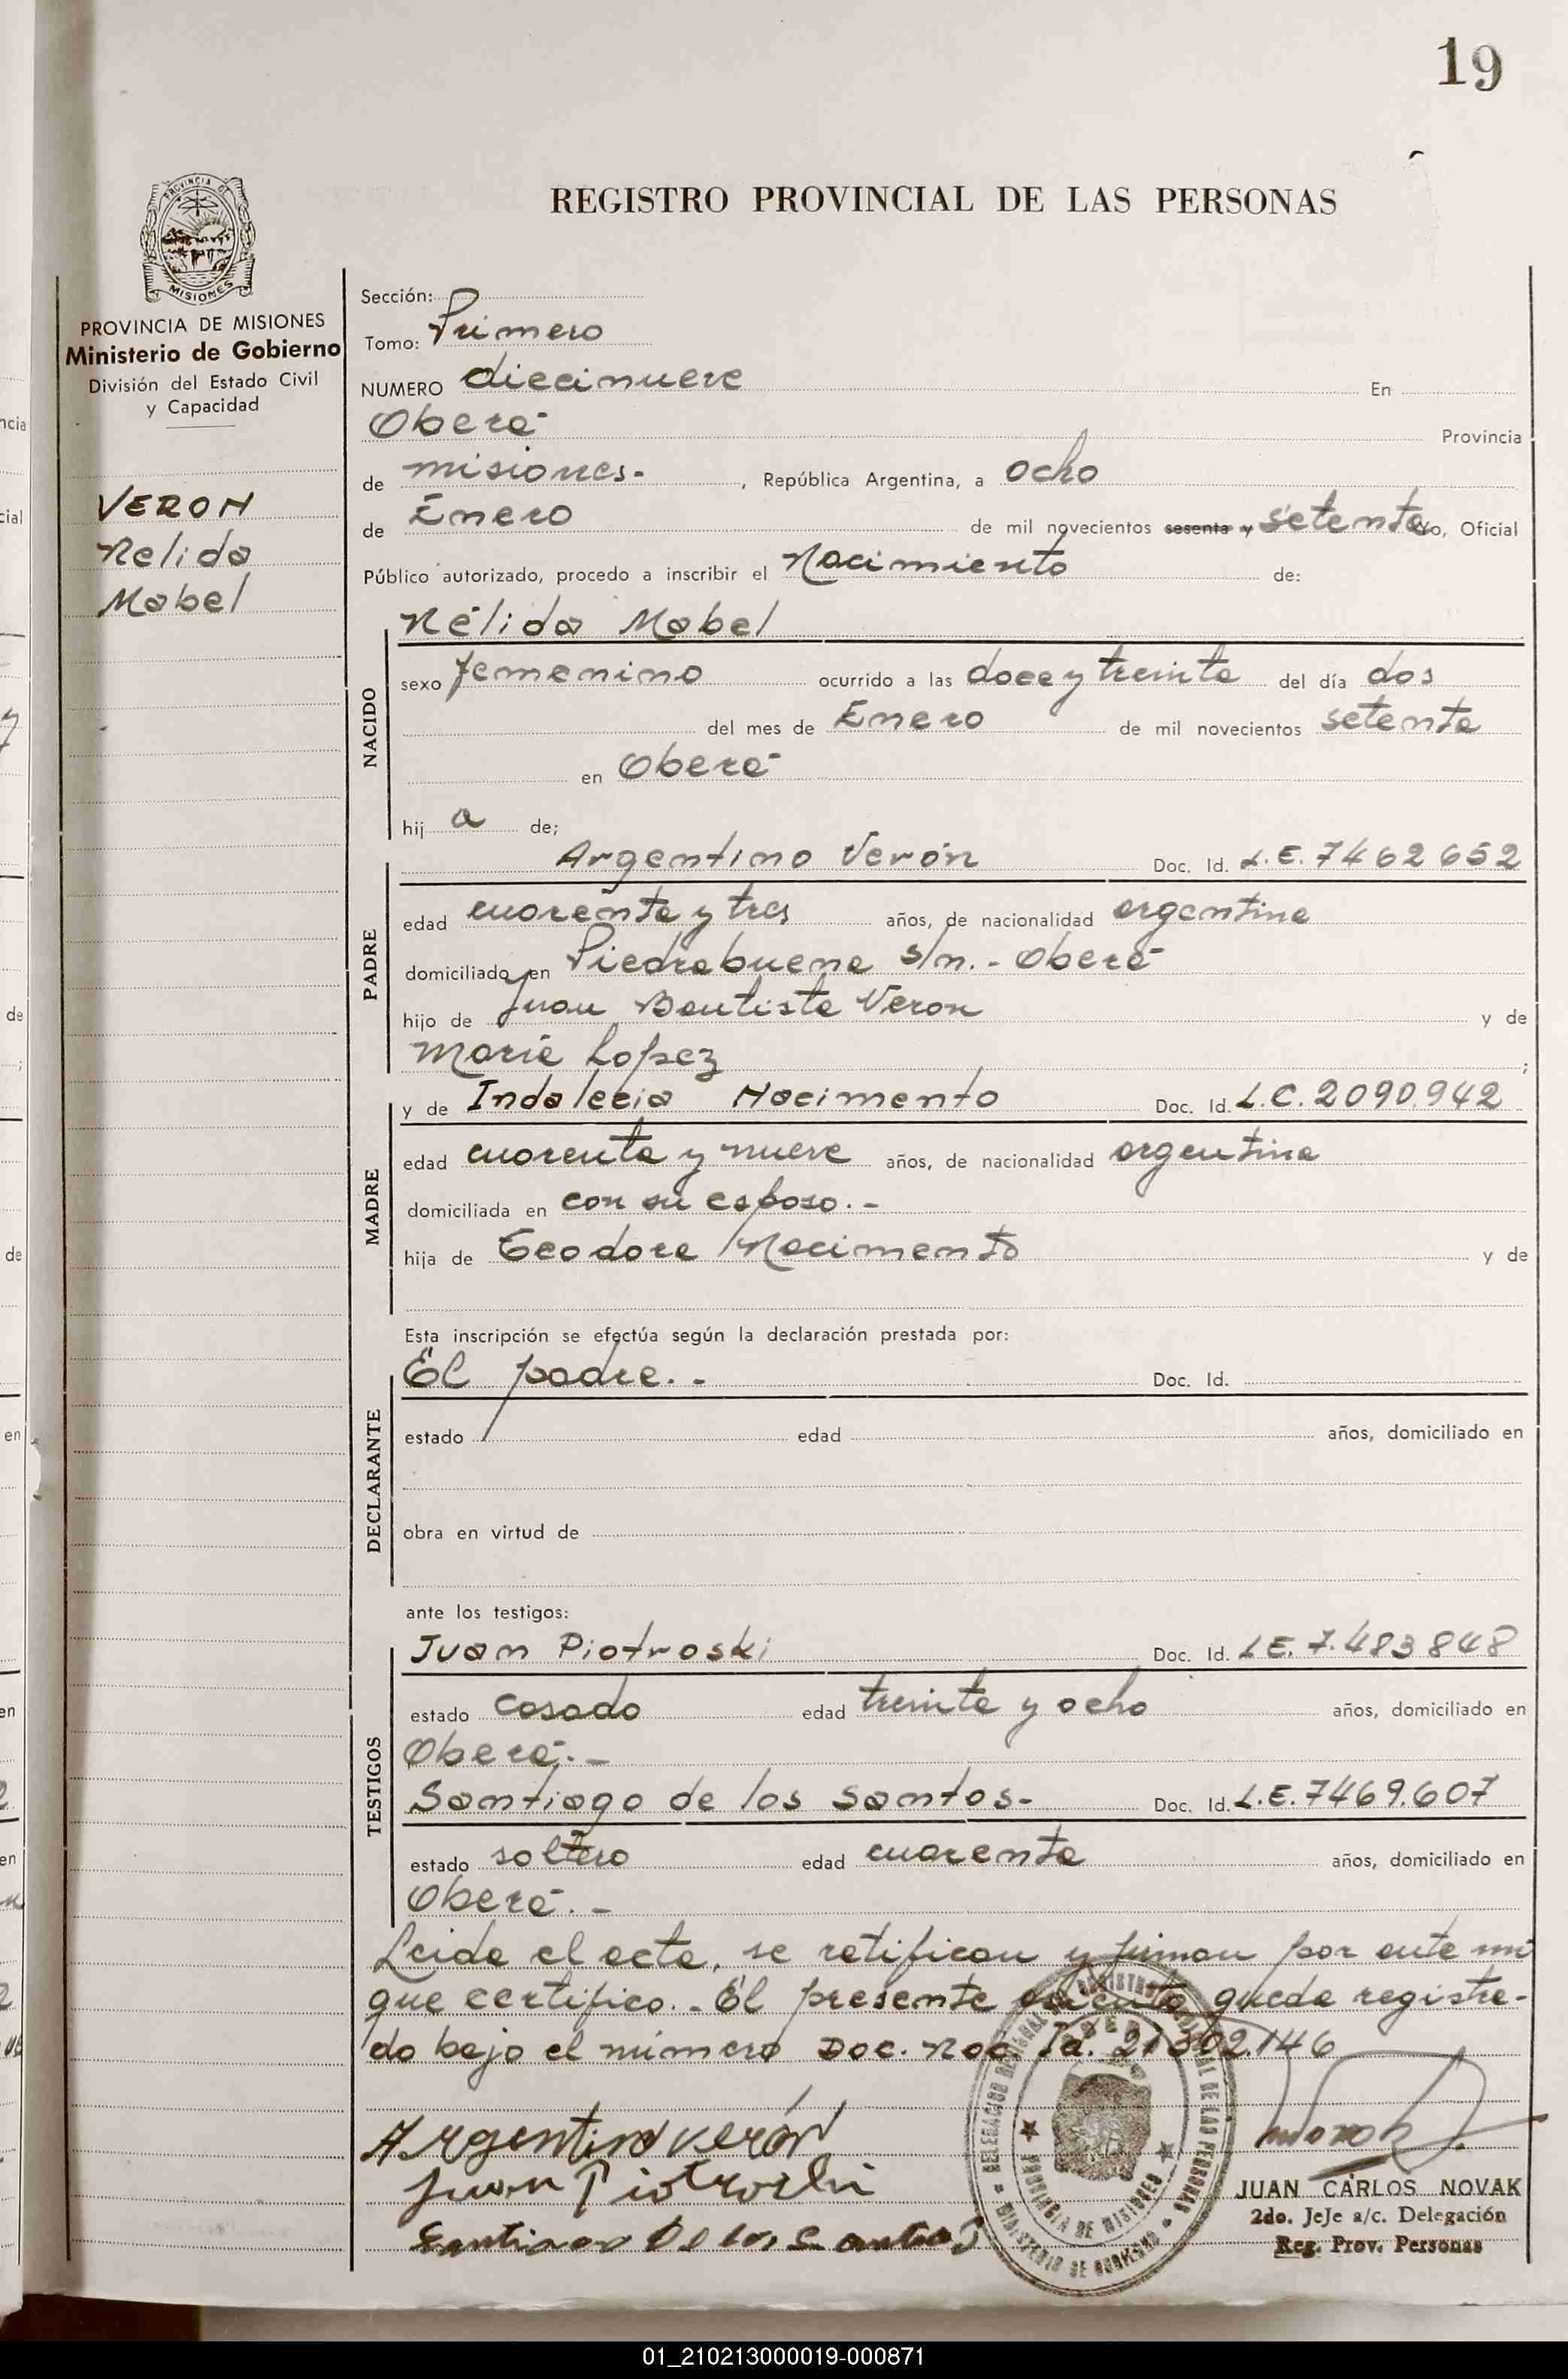 19
REGISTRO PROVINCIAL DE LAS PERSONAS
PROVINCIA DE
MISIONES
PROVINCIA DE MISIONES
Ministerio de Gobierno
División del Estado Civil
y Capacidad
VERON
Nelida
Mabel
Sección:
Tomo: Primero
NUMERO diecinueve En
Oberá Provincia
de misiones.- , República Argentina, a ocho
de Enero de mil novecientos sesenta y setenta Yo, Oficial
Público autorizado, procedo a inscribir el Nacimiento de:
Nélida Mabel
NACIDO
sexo femenino ocurrido a las doce y treinta del día dos
del mes de Enero de mil novecientos setenta
en Oberá
hij a de;
Argentino Verón Doc. Id. L.E. 7462652
PADRE
edad cuarenta y tres años, de nacionalidad argentina
domiciliado en Piedrabuena s/n.- Oberá
hijo de Juan Bautista Veron y de
María Lopez ;
y de Indalecia Nacimento Doc. Id. L.C. 2090.942
MADRE
edad cuarenta y nueve años, de nacionalidad argentina
domiciliada en con su esposo.-
hija de Teodora Nacimento y de
Esta inscripción se efectúa según la declaración prestada por:
El padre.- Doc. Id.
DECLARANTE
estado edad años, domiciliado en
obra en virtud de
ante los testigos:
Juan Piotroski Doc. Id. L.E. 7.483848
TESTIGOS
estado casado edad treinta y ocho años, domiciliado en
Oberá.-
Santiago de los Santos- Doc. Id. L.E. 7469.607
estado soltero edad cuarenta años, domiciliado en
Oberá.-
Leida el acta, se ratifican y firman por ante mi
que certifico.- El presente queda registra-
do bajo el número Doc. Nac. Id. 21302.146
Argentino Verón
Juan Piotroski
Santiago De los Santos
PROVINCIA DE MISIONES
MINISTERIO DE GOBIERNO
Novak
JUAN CARLOS NOVAK
2do. JeJe a/c. Delegación
Reg. Prov. Personas
01_210213000019-000871